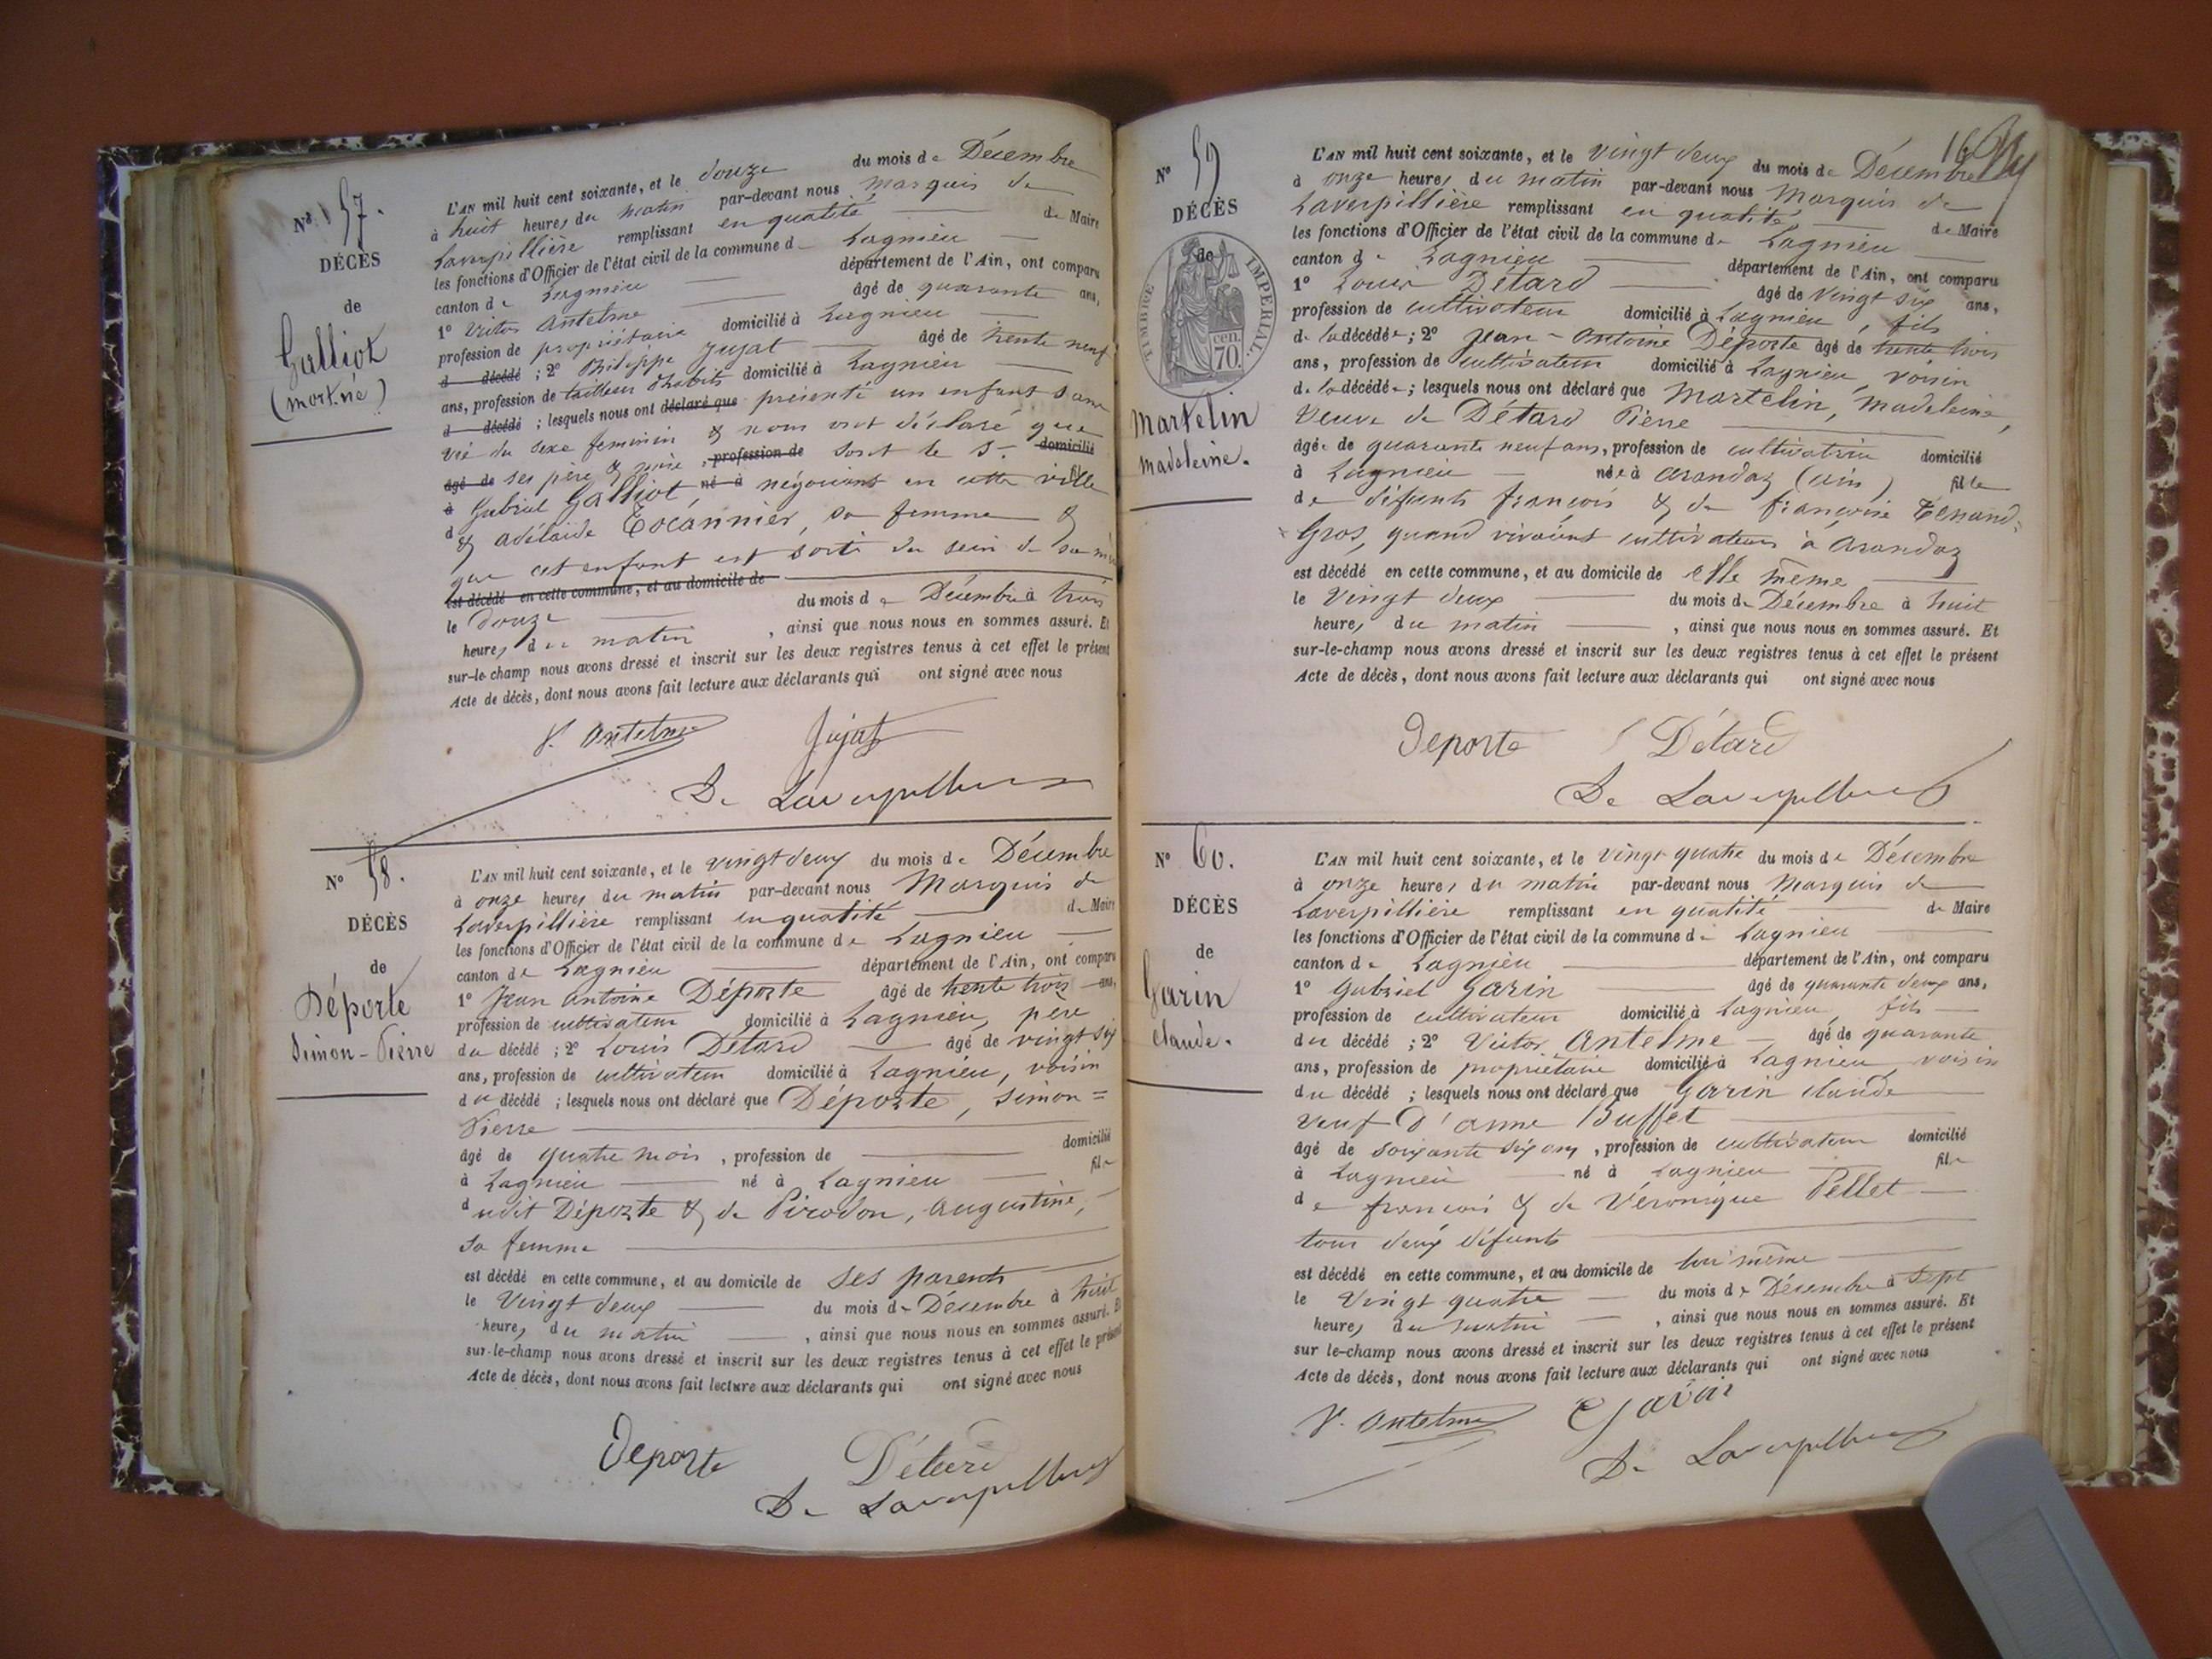 Nº 57.
DÉCÈS
de
Galliot
(mort.né)
L'AN mil huit cent soixante, et le douze du mois de Décembre
à huit heures du matin par-devant nous Marquis de
Laverpillière remplissant en qualité de Maire
les fonctions d'Officier de l'état civil de la commune d Lagnieu
canton de Lagnieu département de l'Ain, ont comparu
1º Victor Antelme âgé de quarante ans,
profession de propriétaire domicilié à Lagnieu
d décédé ; 2º Philippe Jujat âgé de trente neuf
ans, profession de tailleur d'habits domicilié à Lagnieu
d décédé ; lesquels nous ont déclaré que présenté un enfant sans
vie du sexe feminin & nous ont déclaré que
âgé de ses père & mère, profession de sont le Sr. domicilié
à Gabriel Galliot, né à négociant en cette ville fil
d & Adélaïde Tocannier, sa femme &
que cet enfant est sorti du sein de sa mère
est décédé en cette commune, et au domicile de
le douze du mois de Décembre à trois
heures du matin, ainsi que nous nous en sommes assuré. Et
sur-le-champ nous avons dressé et inscrit sur les deux registres tenus à cet effet le présent
Acte de décès, dont nous avons fait lecture aux déclarants qui ont signé avec nous
V. Antelme Jujat
De Laverpilliere
Nº 58.
DÉCÈS
de
Déporte
Simon-Pierre
L'AN mil huit cent soixante, et le vingt deux du mois de Décembre
à onze heures du matin par-devant nous Marquis de
Laverpillière remplissant en qualité de Maire
les fonctions d'Officier de l'état civil de la commune de Lagnieu
canton de Lagnieu département de l'Ain, ont comparu
1º Jean Antoine Déporte âgé de trente trois ans,
profession de cultivateur domicilié à Lagnieu, père
du décédé ; 2º Louis Détard âgé de vingt six
ans, profession de cultivateur domicilié à Lagnieu, voisin
du décédé ; lesquels nous ont déclaré que Déporte, Simon=
Pierre
âgé de quatre mois, profession de domicilié
à Lagnieu né à Lagnieu fils
dudit Déporte & de Pirodon, Augustine,
sa femme
est décédé en cette commune, et au domicile de ses parents
le Vingt deux du mois de Décembre à huit
heures du matin, ainsi que nous nous en sommes assuré. Et
sur-le-champ nous avons dressé et inscrit sur les deux registres tenus à cet effet le présent
Acte de décès, dont nous avons fait lecture aux déclarants qui ont signé avec nous
Deporte Détard
De Laverpilliere
Nº 59
DÉCÈS
de
TIMBRE IMPERIAL
70 cen.
Martelin
Madeleine.
L'AN mil huit cent soixante, et le vingt deux du mois de Décembre
à onze heures du matin par-devant nous Marquis de
Laverpillière remplissant en qualité de Maire
les fonctions d'Officier de l'état civil de la commune de Lagnieu
canton de Lagnieu département de l'Ain, ont comparu
1º Louis Détard âgé de vingt six ans,
profession de cultivateur domicilié à Lagnieu, fils
de la décédée ; 2º Jean-Antoine Déporte âgé de trente trois
ans, profession de cultivateur domicilié à Lagnieu, voisin
de la décédée ; lesquels nous ont déclaré que Martelin, Madeleine,
Veuve de Détard Pierre
âgée de quarante neuf ans, profession de cultivatrice domicilié
à Lagnieu née à Arandaz (Ain) fille
de défunts françois & de françoise Tenand=
Gros, quand vivaient cultivateurs à Arandaz
est décédé en cette commune, et au domicile de elle même
le Vingt deux du mois de Décembre à huit
heures du matin, ainsi que nous nous en sommes assuré. Et
sur-le-champ nous avons dressé et inscrit sur les deux registres tenus à cet effet le présent
Acte de décès, dont nous avons fait lecture aux déclarants qui ont signé avec nous
Deporte Détard
De Laverpilliere
Nº 60.
DÉCÈS
de
Garin
Claude.
L'AN mil huit cent soixante, et le vingt quatre du mois de Décembre
à onze heures du matin par-devant nous Marquis de
Laverpillière remplissant en qualité de Maire
les fonctions d'Officier de l'état civil de la commune de Lagnieu
canton de Lagnieu département de l'Ain, ont comparu
1º Gabriel Garin âgé de quarante deux ans,
profession de cultivateur domicilié à Lagnieu, fils
du décédé ; 2º Victor Antelme âgé de quarante
ans, profession de propriétaire domicilié à Lagnieu, voisin
du décédé ; lesquels nous ont déclaré que Garin Claude
veuf d'Anne Buffet
âgé de soixante six ans, profession de cultivateur domicilié
à Lagnieu né à Lagnieu fils
de françois & de Véronique Pellet
tous deux défunts
est décédé en cette commune, et au domicile de lui même
le Vingt quatre du mois de Décembre à sept
heures du matin, ainsi que nous nous en sommes assuré. Et
sur le-champ nous avons dressé et inscrit sur les deux registres tenus à cet effet le présent
Acte de décès, dont nous avons fait lecture aux déclarants qui ont signé avec nous
V. Antelme Garin
De Laverpilliere